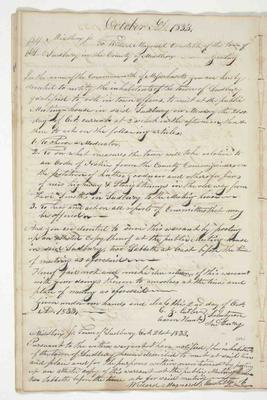 October 2d, 1833.
Middlesex Ss. To Willard Maynard Constable of the Town of
Sudbury in the County of Middlesex Greeting
In the name of the Commonwealth of Massachusetts you are hereby
directed to notify the inhabitants of the town of Sudbury
qualified to vote in town affairs, to meet at the public
Meeting house in said Sudbury on Monday the 21st
day of Oct. current at 2 o'clock in the afternoon, then &
there to act on the following articles.
1. To choose a Moderator.
2. To see what measures the town will take relative to
an Order of Notice from the County Commissioners on
the petition of Luther Goodnow and others for
of new highway & straightenings in the old way from
in Sudbury to the Meeting house
3. To hear and act on all reports of Committees that may
be offered
And you are directed to serve this warrant by posting
up an attested Copy thereof at the public Meeting House
in said Sudbury, two Sabbaths at least before the time
of meeting as aforesaid
Hereof fail not and make due return of this warrant
with your doings thereon to ourselves at the time and
place of meeting as aforesaid
Given under our hands and Seals this 2nd day of Oct.
AD. 1833.
Selectmen
of
Sudbury
Middlesex Ss. Town of Sudbury Oct. 21st 1833.
Pursuant to the within warrant, I have notified the inhabitants
of the town of Sudbury herein directed to meet at said time
and place and for the purposes within mentioned by posting
up an attested copy of this warrant at the public Meeting House
two Sabbaths before the time set for said meeting
Willard Maynard Const. of Sudbury